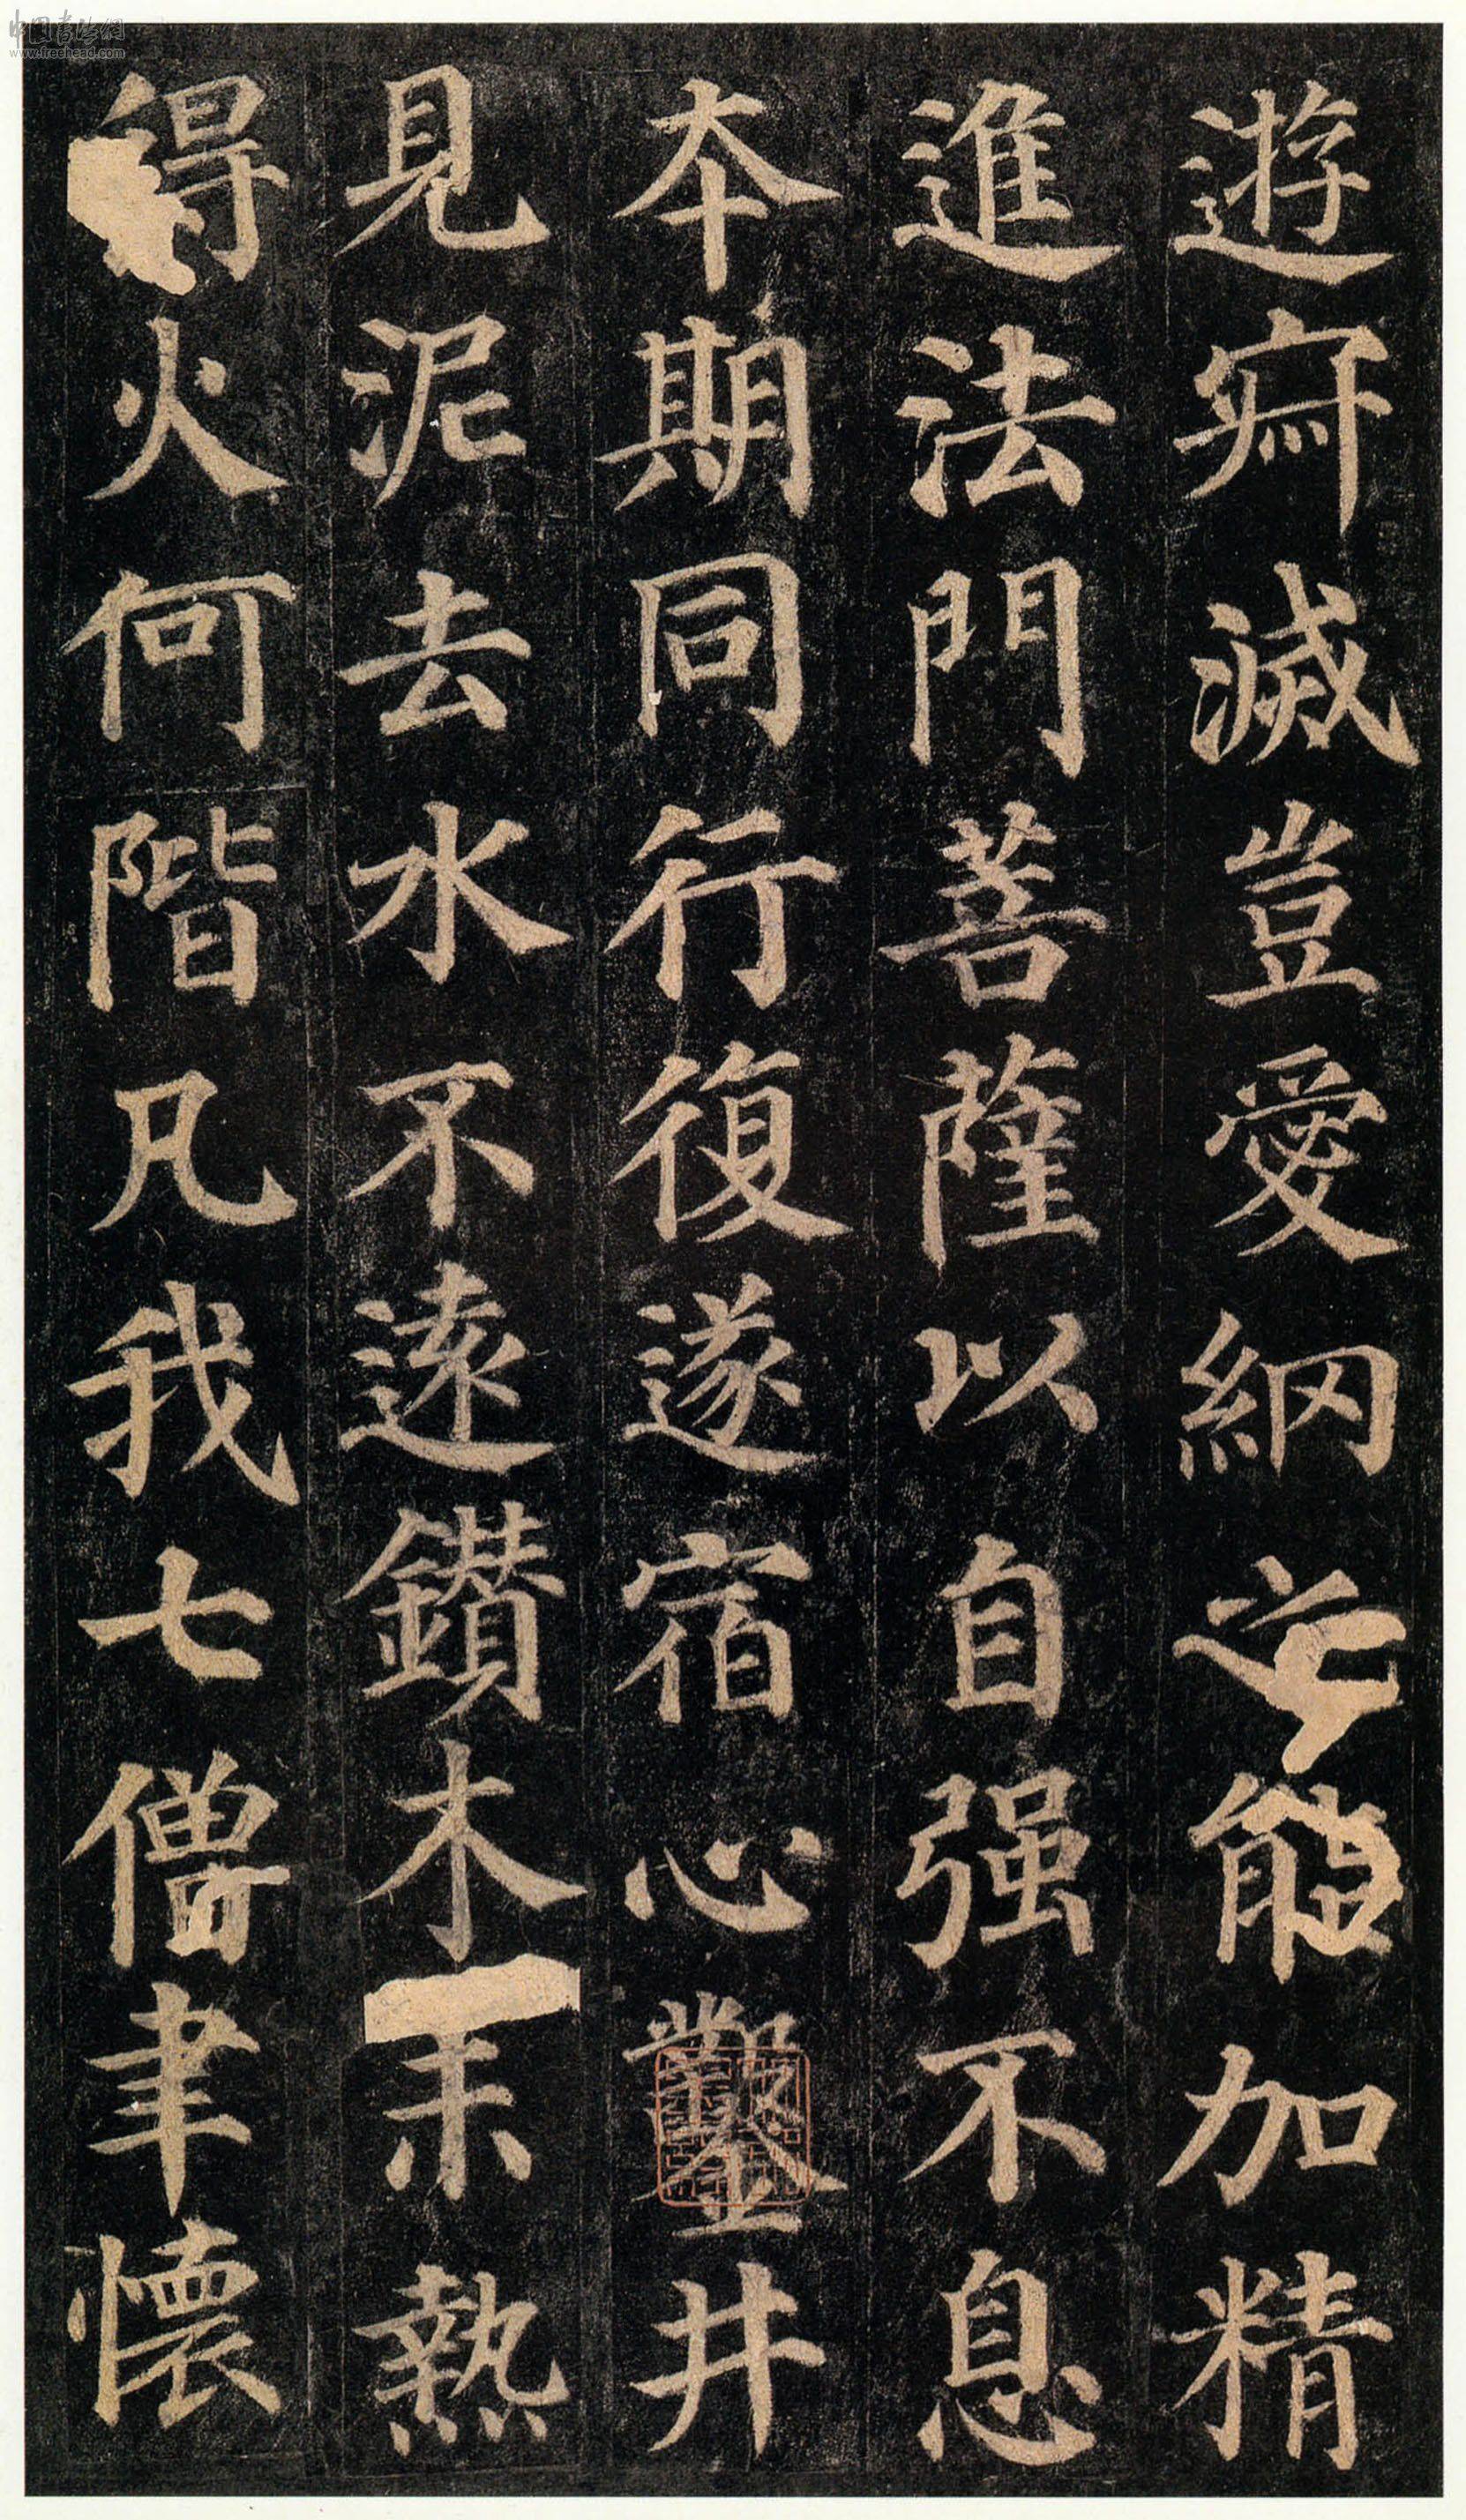 遊寂滅豈愛網之能加精
進法門菩薩以自强不息
本期同行復遂宿心鑿井
見泥去水不遠鑽木未熱
得火何階凡我七僧聿懷
中国书法网
www.freehead.com